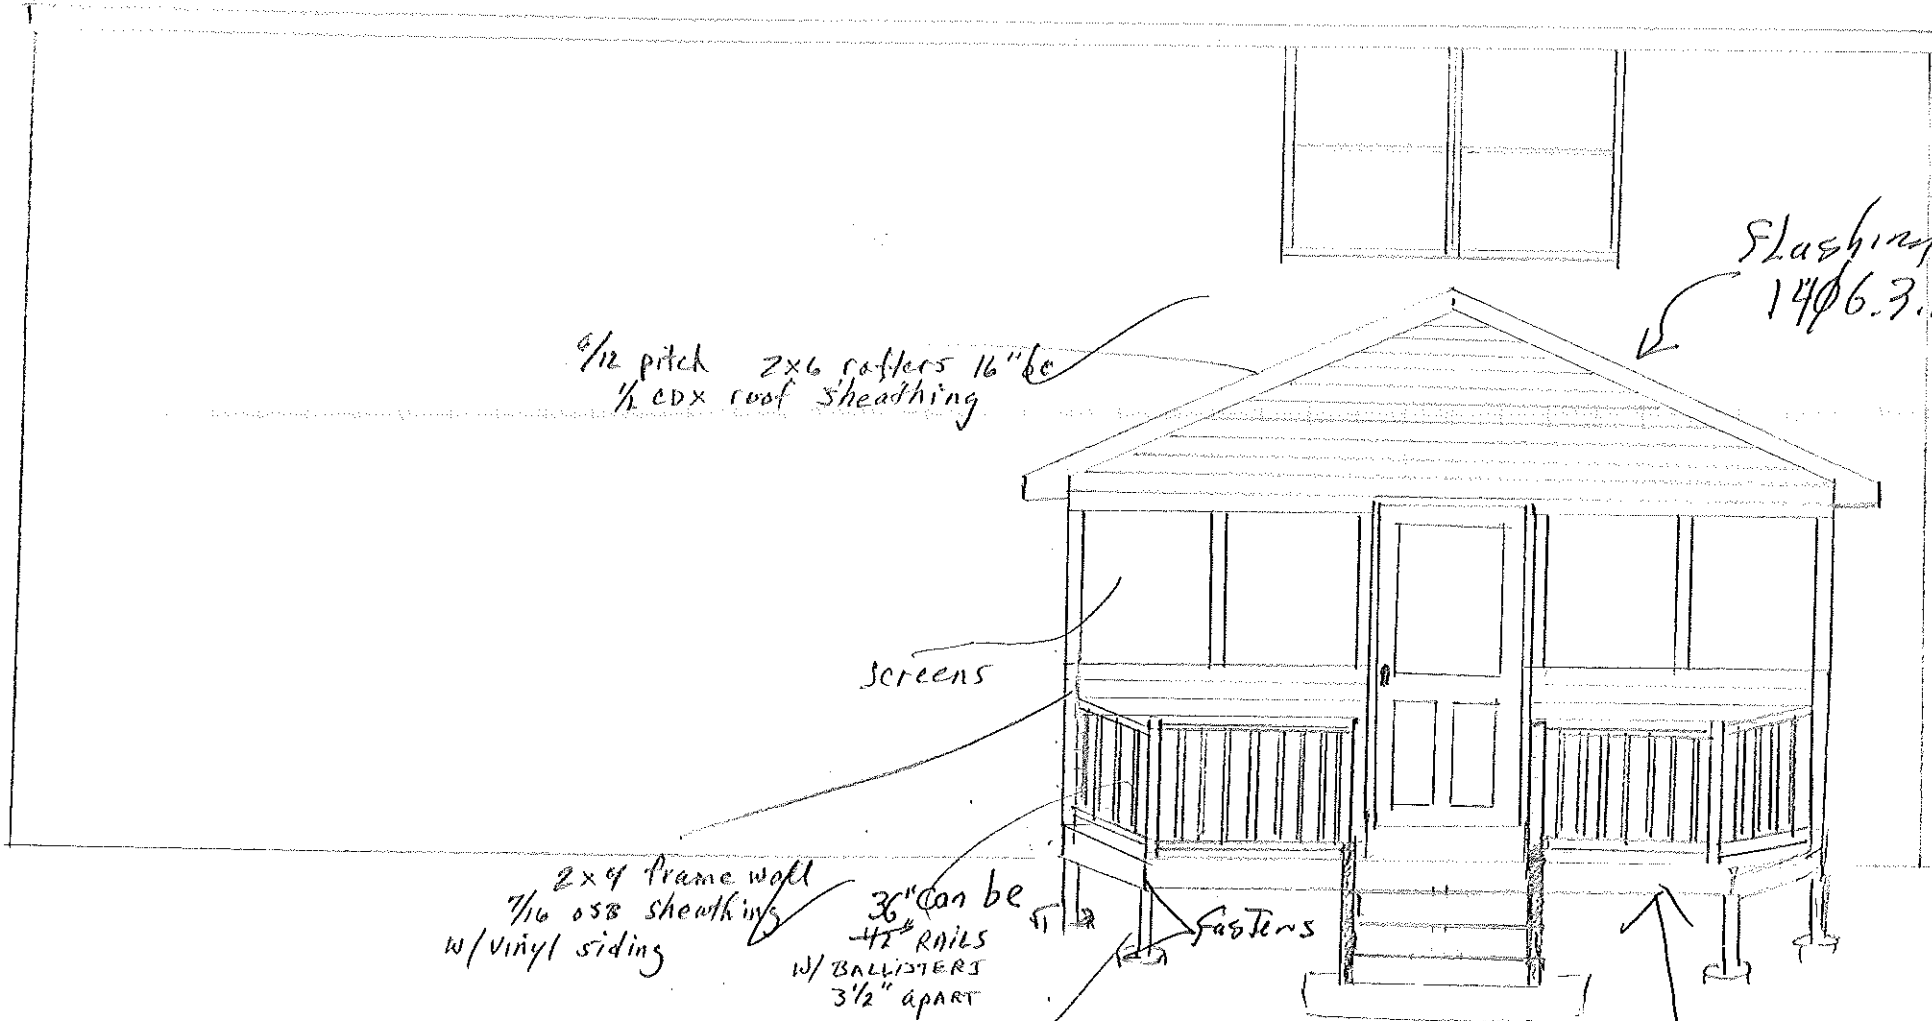 Flashing
1406.3.
6/12 pitch 2x6 rafters 16"
1/2 CDX roof sheathing
screens
2x4 frame wall
7/16 OSB sheathing
w/ vinyl siding
36" can be
42" RAILS
W/ BALLISTERS
3 1/2" APART
fastens